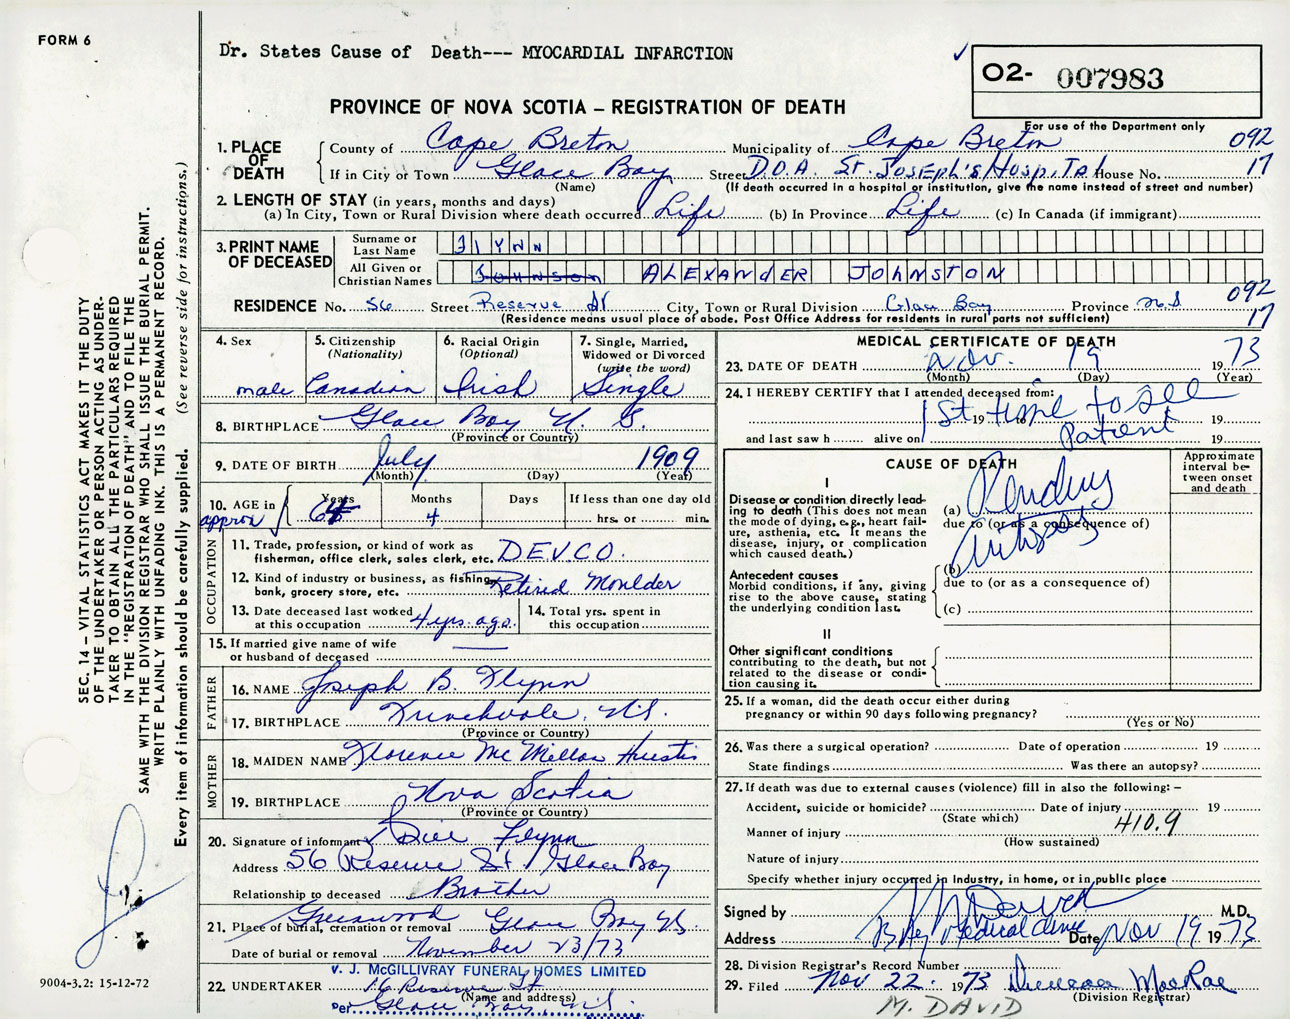 FORM 6
Dr. States Cause of Death--- MYOCARDIAL INFARCTION
✓
O2- 007983
PROVINCE OF NOVA SCOTIA – REGISTRATION OF DEATH
For use of the Department only
1. PLACE OF DEATH { County of Cape Breton Municipality of Cape Breton 092
If in City or Town Glace Bay Street D.O.A. St. Joseph's Hospital House No. 17
(Name) (If death occurred in a hospital or institution, give the name instead of street and number)
2. LENGTH OF STAY (in years, months and days)
(a) In City, Town or Rural Division where death occurred Life (b) In Province Life (c) In Canada (if immigrant)
3. PRINT NAME OF DECEASED
Surname or Last Name Flynn
All Given or Christian Names Johnson ALEXANdER JOHNSTON
RESIDENCE No. 56 Street Reserve St City, Town or Rural Division Glace Bay Province N.S 092
(Residence means usual place of abode. Post Office Address for residents in rural parts not sufficient) 17
4. Sex
male
5. Citizenship
(Nationality)
Canadian
6. Racial Origin
(Optional)
Irish
7. Single, Married,
Widowed or Divorced
(write the word)
Single
8. BIRTHPLACE Glace Bay N. S.
(Province or Country)
9. DATE OF BIRTH July 1909
(Month) (Day) (Year)
10. AGE in approx { Years 64 Months 4 Days If less than one day old
hrs. or min.
OCCUPATION
11. Trade, profession, or kind of work as
fisherman, office clerk, sales clerk, etc. DEVCO.
12. Kind of industry or business, as fishing,
bank, grocery store, etc. Retired Moulder
13. Date deceased last worked
at this occupation 4 yrs. ago.
14. Total yrs. spent in
this occupation
15. If married give name of wife
or husband of deceased ——
FATHER
16. NAME Joseph B. Flynn
17. BIRTHPLACE Frenchvale, N.S.
(Province or Country)
MOTHER
18. MAIDEN NAME Florence McMillan Huestis
19. BIRTHPLACE Nova Scotia
(Province or Country)
20. Signature of informant Bill Flynn
Address 56 Reserve St Glace Bay
Relationship to deceased Brother
21. Place of burial, cremation or removal Greenwood Glace Bay NS.
Date of burial or removal November 23/73
V. J. McGILLIVRAY FUNERAL HOMES LIMITED
22. UNDERTAKER 16 Reserve St
(Name and address)
Per Glace Bay, N.S.
MEDICAL CERTIFICATE OF DEATH
23. DATE OF DEATH Nov. 19 1973
(Month) (Day) (Year)
24. I HEREBY CERTIFY that I attended deceased from:
1st time to see
19 to 19
and last saw h alive on patient 19
CAUSE OF DEATH
Approximate interval between onset and death
I
Disease or condition directly leading to death (This does not mean the mode of dying, e.g., heart failure, asthenia, etc. It means the disease, injury, or complication which caused death.)
(a) Pending
due to (or as a consequence of)
Autopsy
Antecedent causes
Morbid conditions, if any, giving rise to the above cause, stating the underlying condition last.
(b)
due to (or as a consequence of)
(c)
II
Other significant conditions
contributing to the death, but not related to the disease or condition causing it.
25. If a woman, did the death occur either during
pregnancy or within 90 days following pregnancy?
(Yes or No)
26. Was there a surgical operation? Date of operation 19
State findings Was there an autopsy?
27. If death was due to external causes (violence) fill in also the following: –
Accident, suicide or homicide? Date of injury 19
(State which)
Manner of injury 410.9
(How sustained)
Nature of injury
Specify whether injury occurred in Industry, in home, or in public place
Signed by M.D.
Address Bay Medical Clinic Date Nov 19 1973
28. Division Registrar's Record Number
29. Filed Nov 22 1973 Duncan MacRae
(Division Registrar)
M. DAVID
SEC. 14 – VITAL STATISTICS ACT MAKES IT THE DUTY
OF THE UNDERTAKER OR PERSON ACTING AS UNDER-
TAKER TO OBTAIN ALL THE PARTICULARS REQUIRED
IN THE "REGISTRATION OF DEATH" AND TO FILE THE
SAME WITH THE DIVISION REGISTRAR WHO SHALL ISSUE THE BURIAL PERMIT.
WRITE PLAINLY WITH UNFADING INK. THIS IS A PERMANENT RECORD.
Every item of information should be carefully supplied. (See reverse side for instructions.)
9004-3.2: 15-12-72